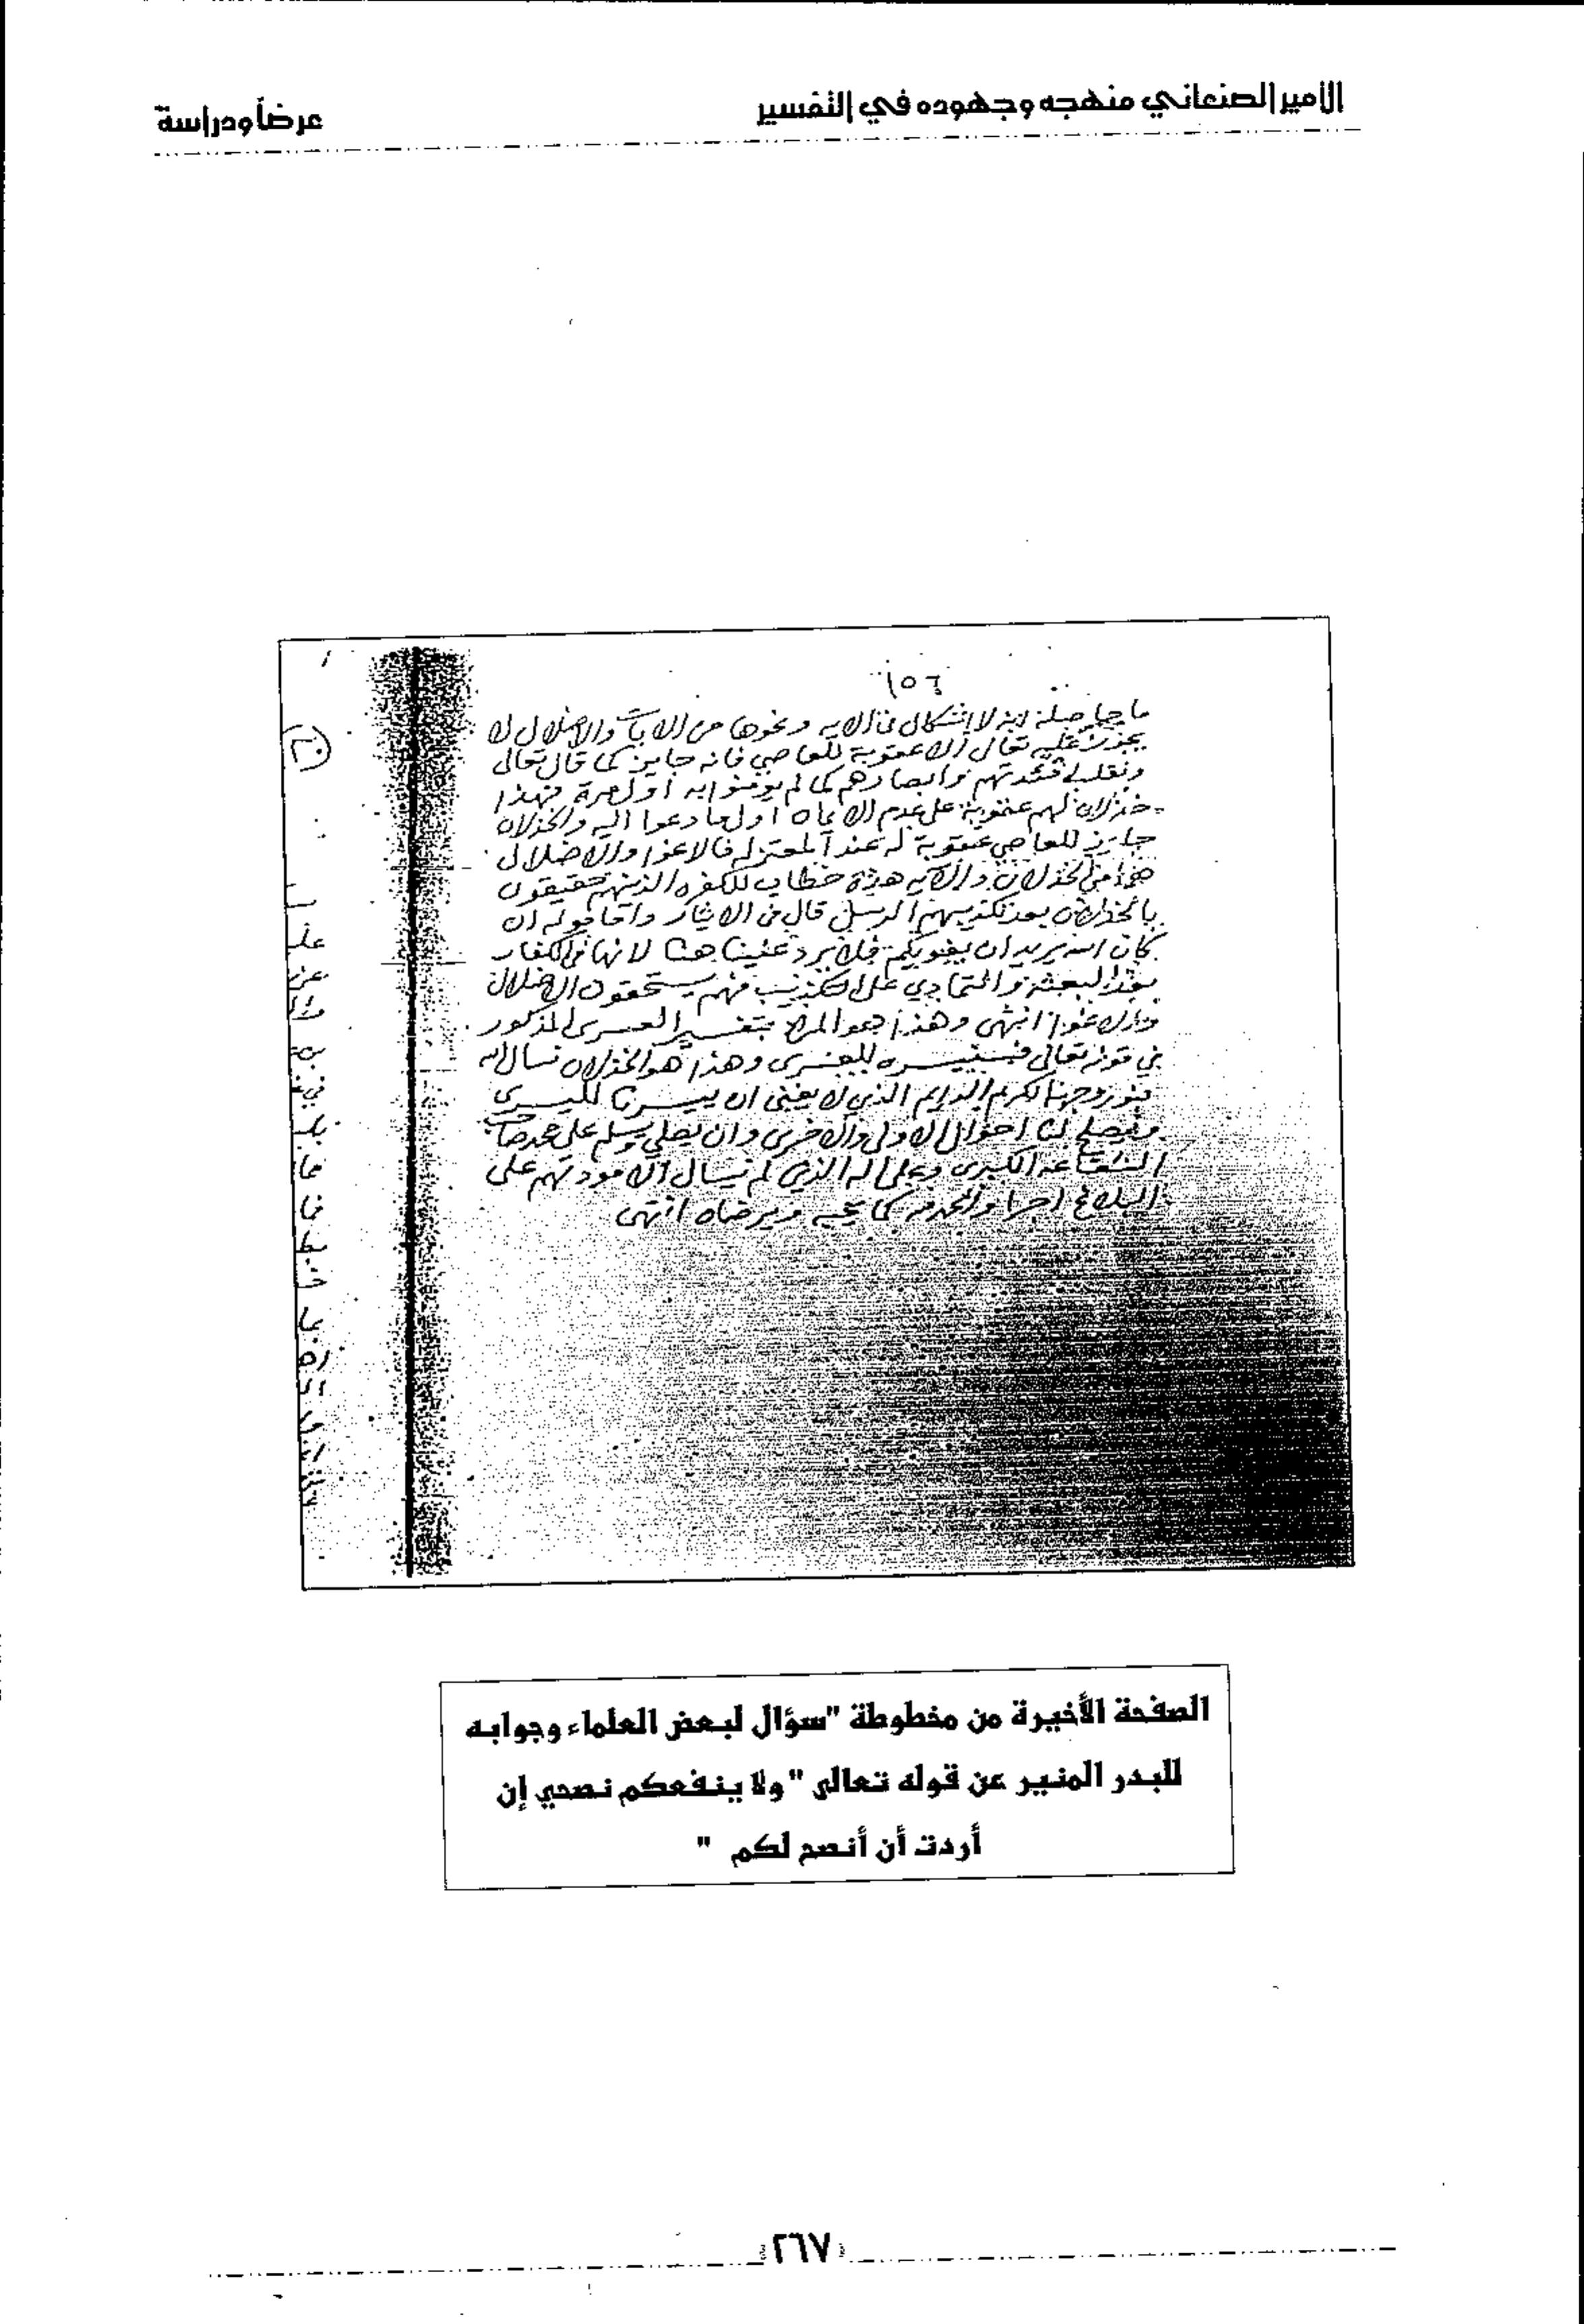 الأمير الصنعاني منهجه وجهوده في التفسير
عرضاً ودراسة
١٥٦
ما حاصله انه لا اشكال في الايه ونحوها من الايات والاضلال لا
يجوز عليه تعالى الا عقوبة للعاصي فانه جايز كما قال تعالى
ونقلب افئدتهم وابصارهم كما لم يومنوا به اول مرة فهذا
خذلان لهم عقوبة على عدم الايمان اول ما دعوا اليه والخذلان
جايز للعاصي عقوبة له عند المعتزله فالاغوا والاضلال
هما من الخذلان والآيه هذه خطاب للكفره الذين هم حقيقون
بالخذلان بعد تكذيبهم الرسل قال في الايثار واما قوله ان
كان الله يريد ان يغويكم فلا يرد علينا هنا لانها في الكفار
بعد البعثة والتمادي على التكذيب فهم يستحقون الاضلال
والاغوا انتهى وهذا هو المراد بتفسير العسرى المذكور
في قوله تعالى فسنيسره للعسرى وهذا هو الخذلان نسال الله
بنور وجهه الكريم الدايم الذي لا يفنى ان ييسرنا لليسرى
ويصلح لنا احوال الاولى والاخرى وان يصلي ويسلم على محمد صاحب
الشفاعه الكبرى وعلى اله الذي لم نسال الا مودتهم على
البلاغ اجرا والحمدلله كما يحبه ويرضاه انتهى
الصفحة الأخيرة من مخطوطة "سؤال لبعض العلماء وجوابه
للبدر المنير عن قوله تعالى "ولا ينفعكم نصحي إن
أردت أن أنصح لكم "
٢٦٧